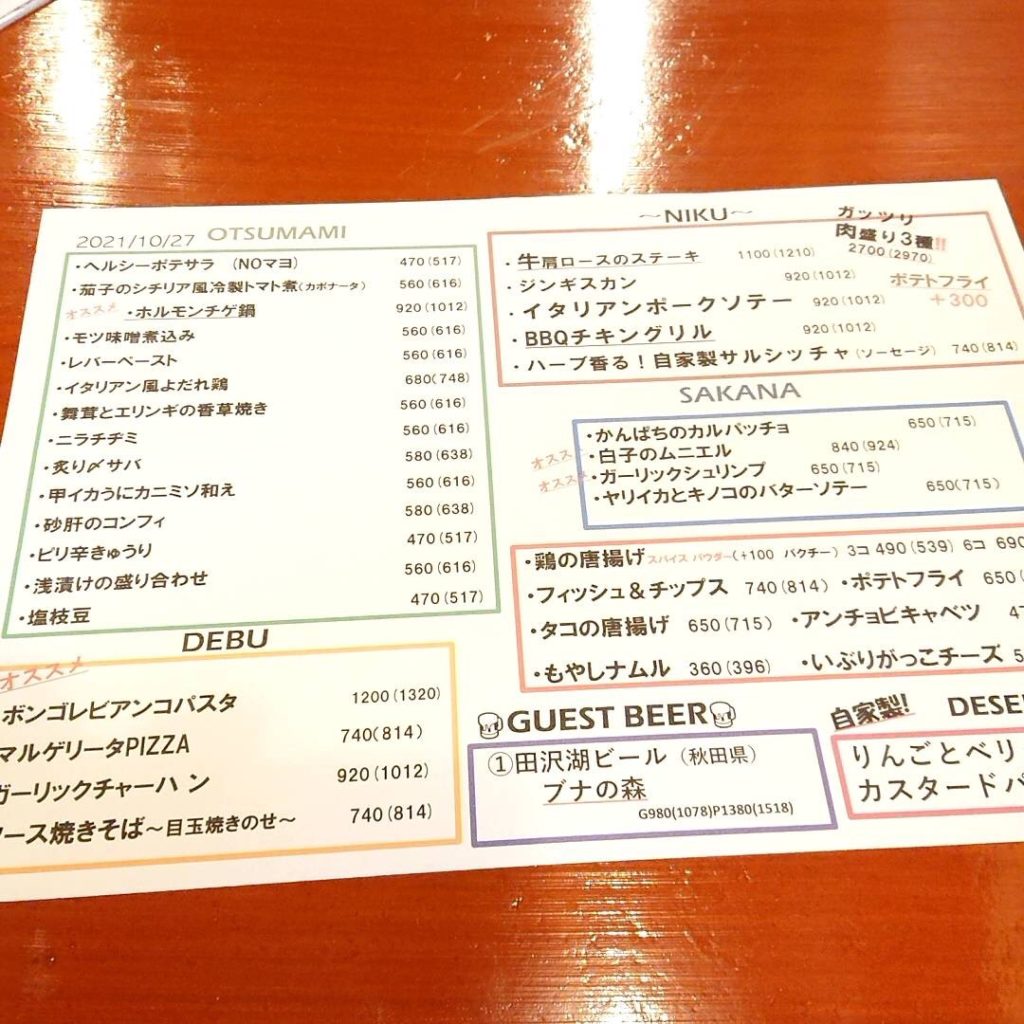 2021/10/27 OTSUMAMI
・ヘルシーポテサラ (NOマヨ) 470(517)
・茄子のシチリア風冷製トマト煮(カポナータ) 560(616)
オススメ ・ホルモンチゲ鍋 920(1012)
・モツ味噌煮込み 560(616)
・レバーペースト 560(616)
・イタリアン風よだれ鶏 680(748)
・舞茸とエリンギの香草焼き 560(616)
・ニラチヂミ 560(616)
・炙り〆サバ 580(638)
・甲イカうにカニミソ和え 560(616)
・砂肝のコンフィ 580(638)
・ピリ辛きゅうり 470(517)
・浅漬けの盛り合わせ 560(616)
・塩枝豆 470(517)
DEBU
オススメ
ボンゴレビアンコパスタ 1200(1320)
マルゲリータPIZZA 740(814)
ガーリックチャーハン 920(1012)
ソース焼きそば～目玉焼きのせ～ 740(814)
～NIKU～
ガッツリ
肉盛り3種!!
2700(2970)
ポテトフライ
+300
・牛肩ロースのステーキ 1100(1210)
・ジンギスカン 920(1012)
・イタリアンポークソテー 920(1012)
・BBQチキングリル 920(1012)
・ハーブ香る！自家製サルシッチャ(ソーセージ) 740(814)
SAKANA
・かんぱちのカルパッチョ 650(715)
オススメ ・白子のムニエル 840(924)
オススメ ・ガーリックシュリンプ 650(715)
・ヤリイカとキノコのバターソテー 650(715)
・鶏の唐揚げ スパイス パウダー(+100 パクチー) 3コ 490(539) 6コ 690
・フィッシュ＆チップス 740(814) ・ポテトフライ 650(
・タコの唐揚げ 650(715) ・アンチョビキャベツ 47
・もやしナムル 360(396) ・いぶりがっこチーズ 5
GUEST BEER
①田沢湖ビール (秋田県)
ブナの森
G980(1078)P1380(1518)
自家製! DESE
りんごとベリ
カスタードパ